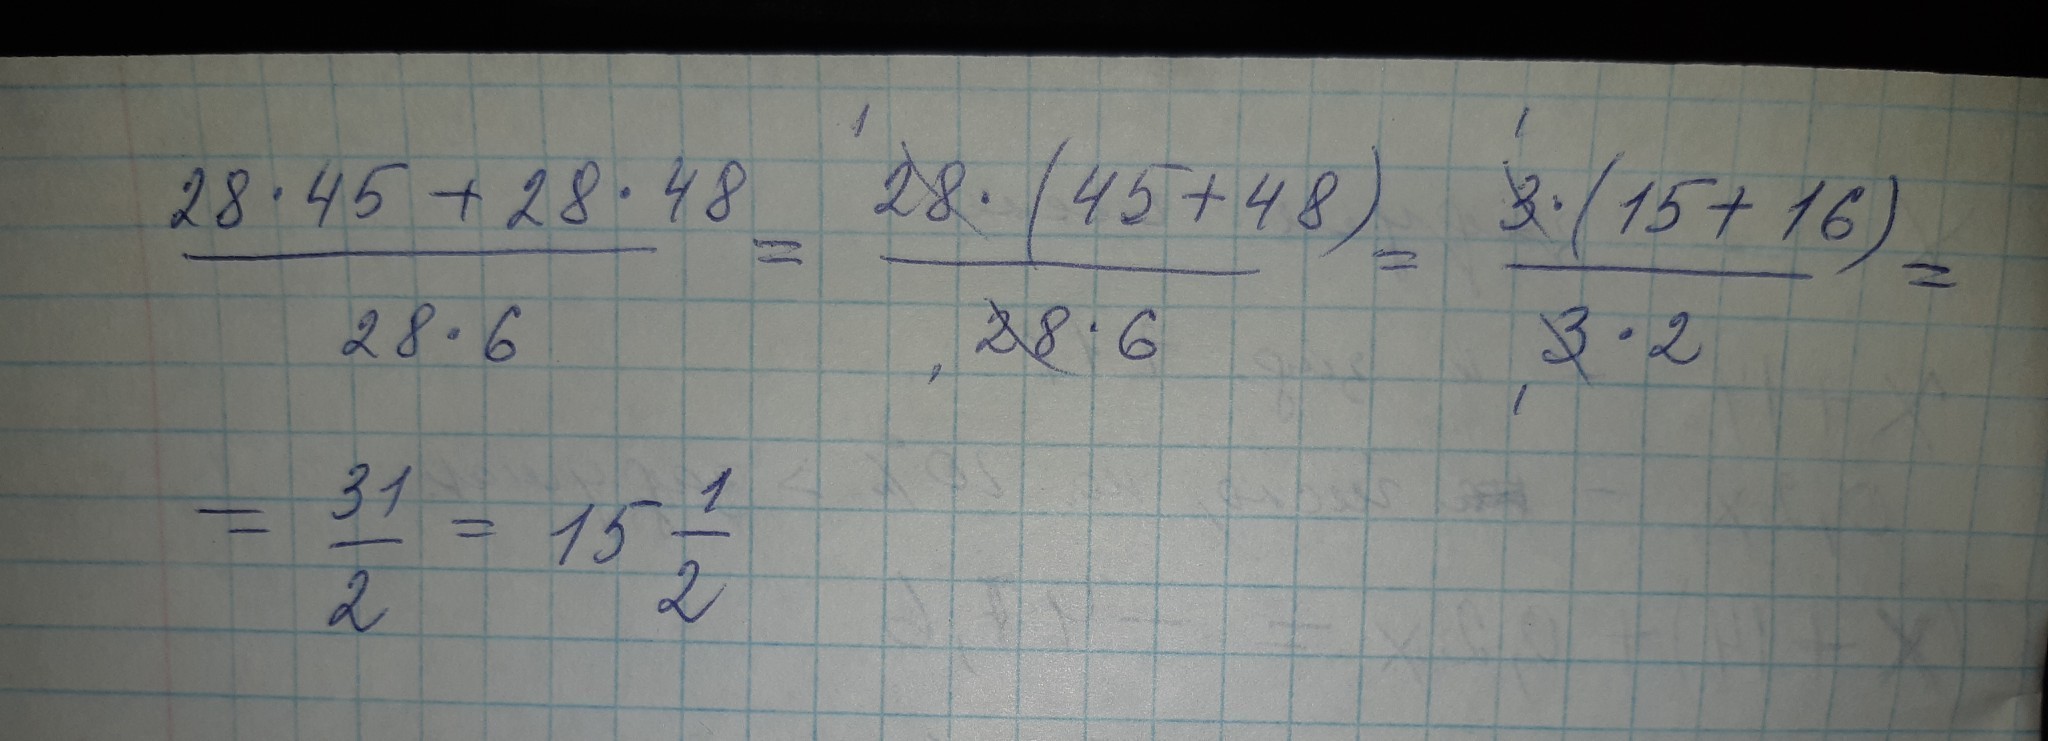 28·45+28·48/28·6 = 28·(45+48)/28·6 = 3·(15+16)/3·2 =
= 31/2 = 15 1/2